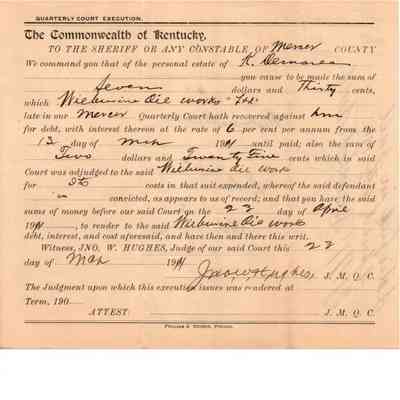 QUARTERLY COURT EXECUTION.
The Commonwealth of Kentucky,
TO THE SHERIFF OR ANY CONSTABLE OF Mercer COUNTY
We command you that of the personal estate of R. Demaree
you cause to be made the sum of
Seven dollars and Thirty cents,
which Wilburine Oil Works Ltd.
late in our Mercer Quarterly Court hath recovered against him
for debt, with interest thereon at the rate of 6 per cent per annum from the
13 day of Mch 1911 until paid; also the sum of
Two dollars and Twenty five cents which in said
Court was adjudged to the said Wilburine Oil Work
for its costs in that suit expended, whereof the said defendant
is convicted, as appears to us of record; and that you have the said
sums of money before our said Court on the 22 day of April
1911, to render to the said Wilburine Oil Work
debt, interest, and cost aforesaid, and have then and there this writ.
Witness, JNO. W. HUGHES, Judge of our said Court this 22
day of Mar 1911
Jno W Hughes J. M. Q. C.
The Judgment upon which this execution issues was rendered at
Term, 190
ATTEST: J. M. Q. C.